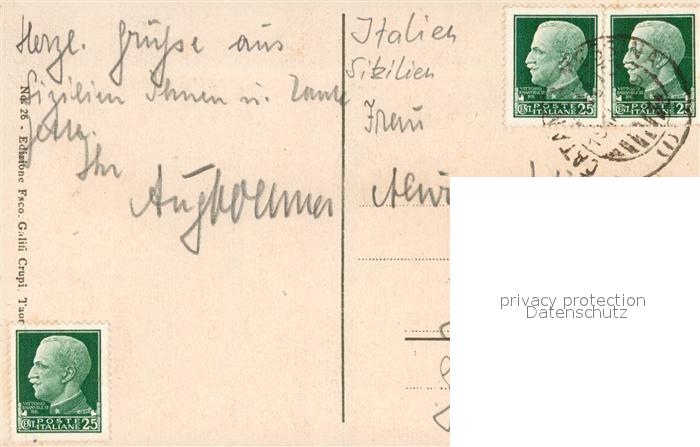 Herzl. Grüße aus
Sizilien Ihnen u. Tante
Ihr
Italien
Sizilien
Frau
No. 26 - Edizione Fsco. Galifi Crupi, Taor
VITTORIO
EMANVELE III
RE
CENT. POSTE ITALIANE 25
VITTORIO
EMANVELE III
RE
CENT. POSTE ITALIANE 25
VITTORIO
EMANVELE III
RE
CENT. POSTE ITALIANE 25
CATA
privacy protection
Datenschutz